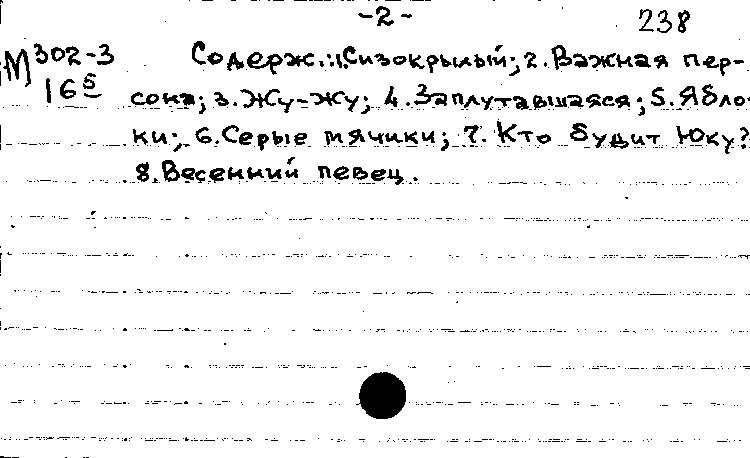 -2-
238
М302-3
16 5
Содерж.:1.Сизокрылый; 2.Важная пер-
сона; 3.Жу-жу; 4.Заплутавшаяся; 5.Ябло-
ки; 6.Серые мячики; 7.Кто будит Юку?
8.Весенний певец.